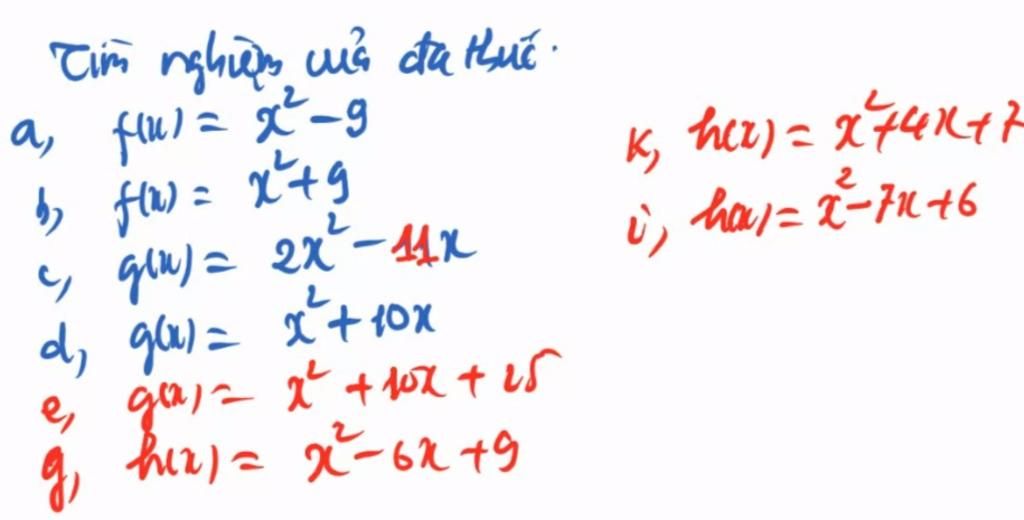 Tìm nghiệm của đa thức.
a, f(x) = x² - 9
b, f(x) = x² + 9
c, g(x) = 2x² - 11x
d, g(x) = x² + 10x
e, g(x) = x² + 10x + 25
g, h(x) = x² - 6x + 9
k, h(x) = x² + 4x + 7
i, h(x) = x² - 7x + 6